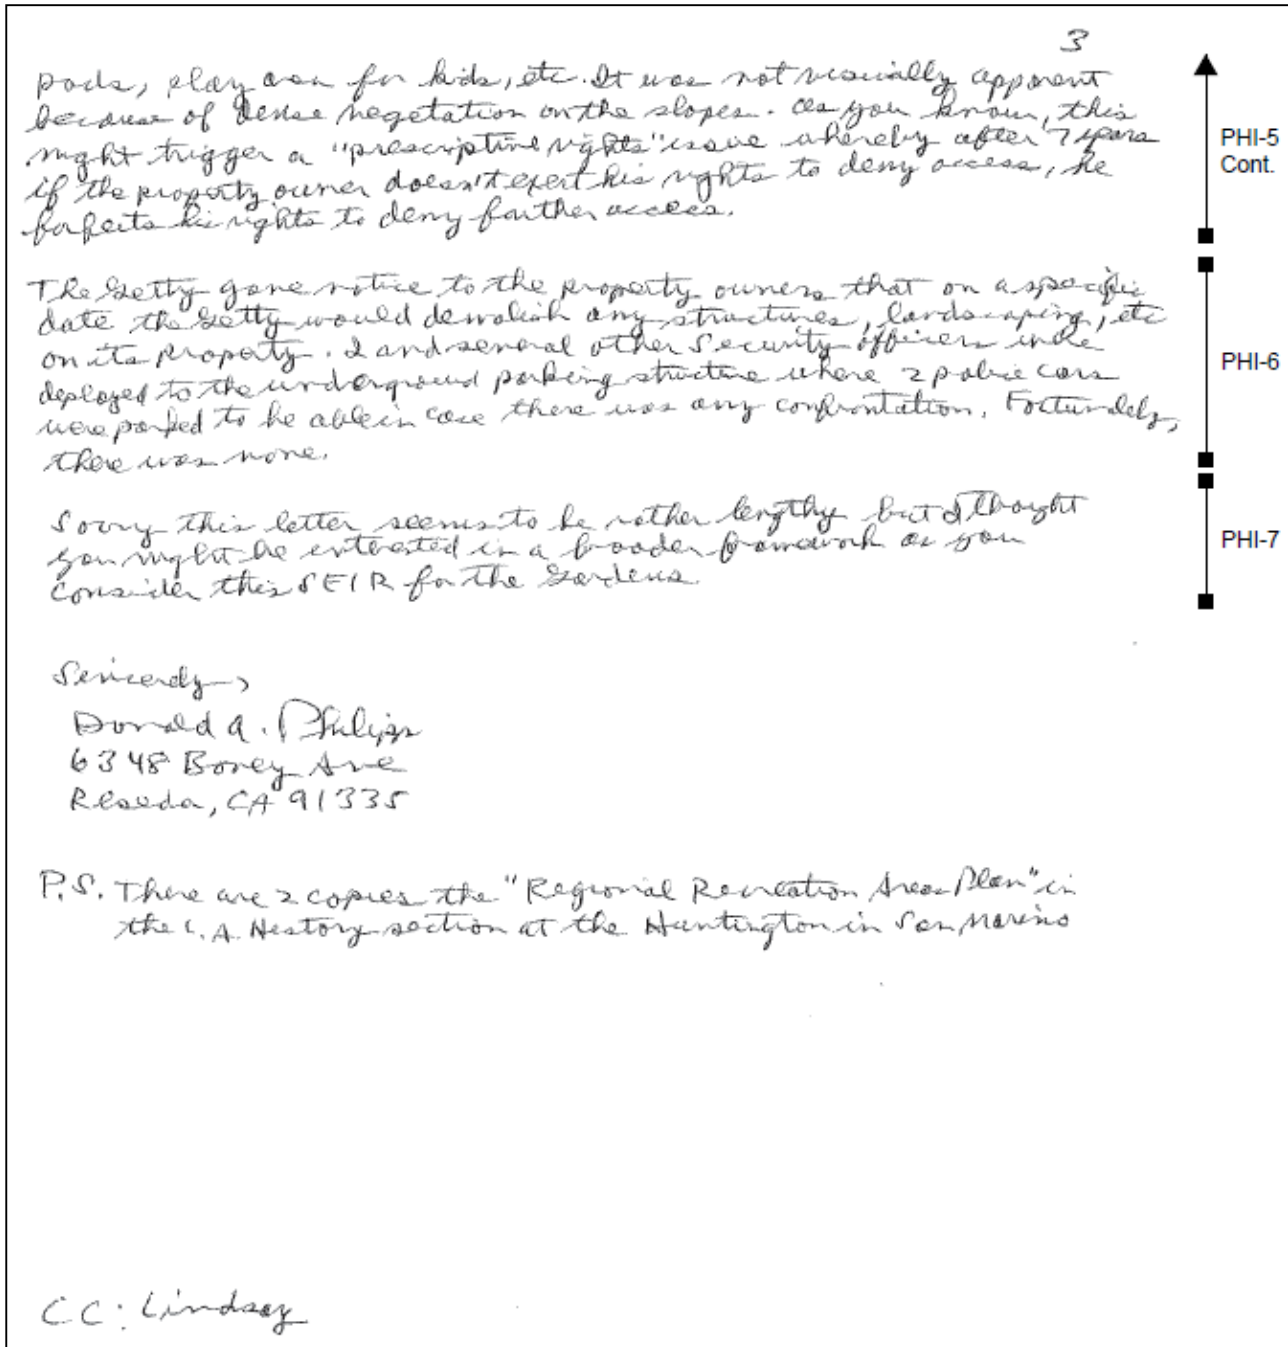 3
pads, play area for kids, etc. It was not visually apparent
because of dense vegetation on the slopes. As you know, this
might trigger a "prescriptive rights" issue whereby after 7 years
if the property owner doesn't exert his rights to deny access, he
forfeits his rights to deny further access.
PHI-5
Cont.
The Getty gave notice to the property owners that on a specific
date the Getty would demolish any structures, landscaping, etc
on its property. I and several other Security officers were
deployed to the underground parking structure where 2 police cars
were parked to be able in case there was any confrontation. Fortunately,
there was none.
PHI-6
Sorry this letter seems to be rather lengthy but I thought
you might be interested in a broader framework as you
consider this SEIR for the Gardens
PHI-7
Sincerely,
Donald A. Philipp
6348 Boney Ave
Reseda, CA 91335
P.S. There are 2 copies the "Regional Recreation Areas Plan" in
the L.A. History section at the Huntington in San Marino
CC: Lindsay